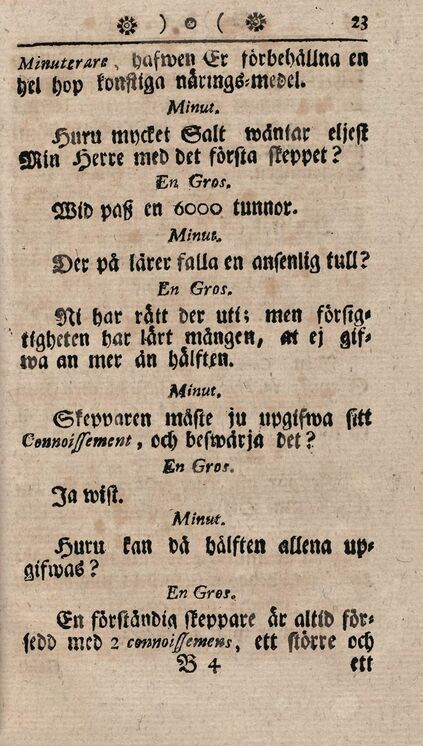 ) o ( 23
Minuterare, hafwen Er förbehållna en
hel hop konstiga närings-medel.
Minut.
Huru mycket Salt wäntar eljest
Min Herre med det första skeppet?
En Gros.
Wid paß en 6000 tunnor.
Minut.
Der på lärer falla en ansenlig tull?
En Gros.
Ni har rätt der uti; men försig-
tigheten har lärt mången, at ej gif-
wa an mer än hälften.
Minut.
Skepparen måste ju upgifwa sitt
Connoissement, och beswärja det?
En Gros.
Ja wist.
Minut.
Huru kan då hälften allena up-
gifwas?
En Gros.
En förståndig skeppare är altid för-
sedd med 2 connoissemens, ett större och
B 4 ett